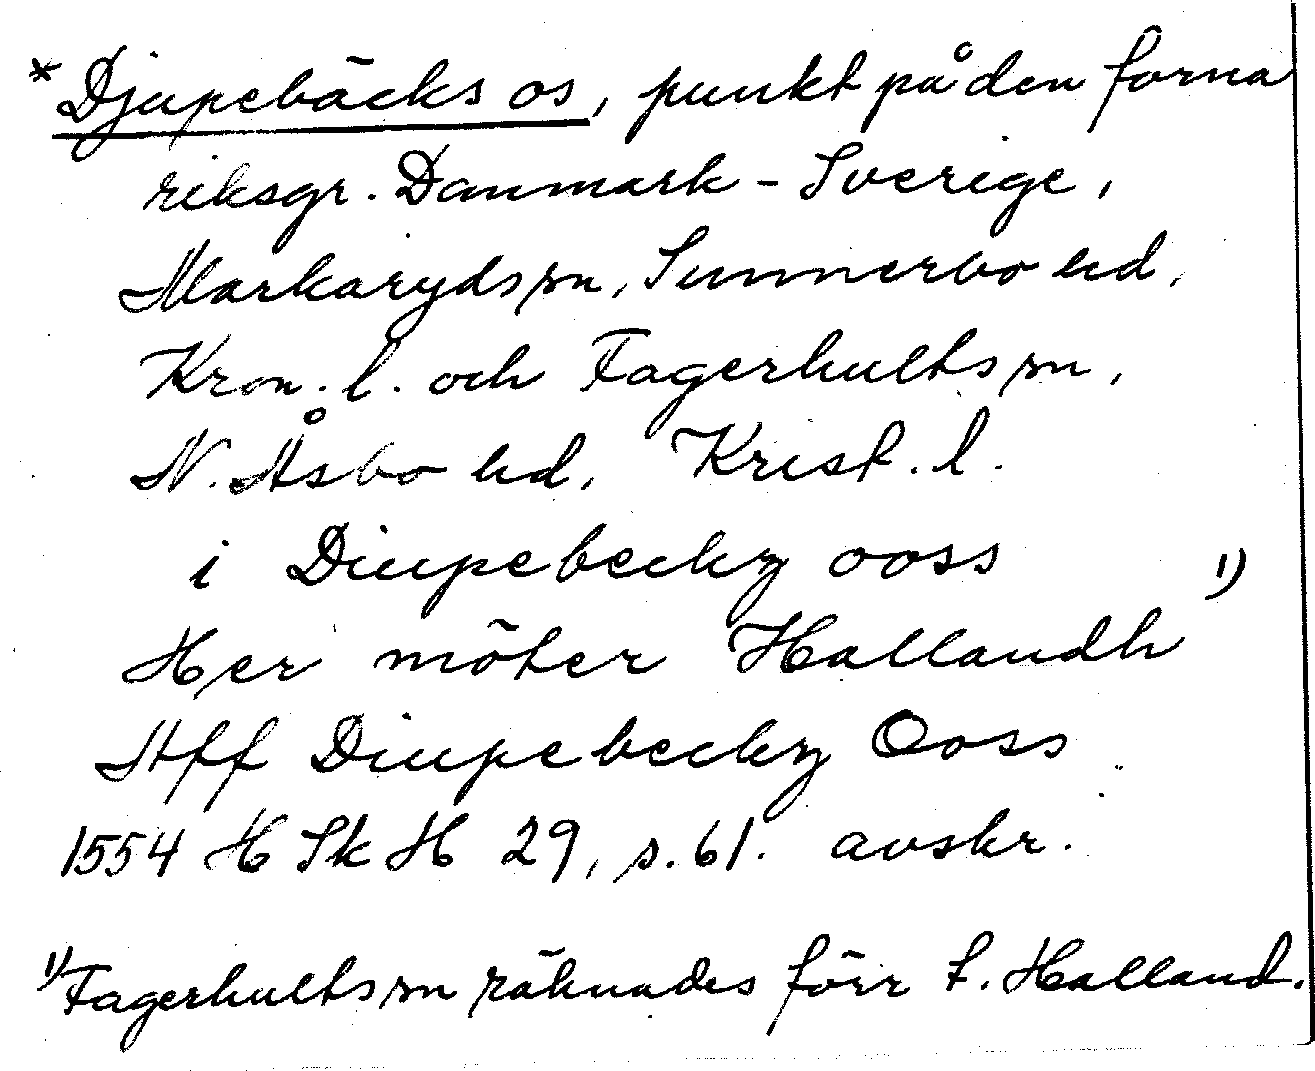 * Djupebäcks os, punkt på den forna
riksgr. Danmark - Sverige,
Markaryds sn, Sunnerbo hd,
Kron. l. och Fagerhults sn,
N. Åsbo hd, Krist. l.
i Diupebeckz ooss
Her möter Hallandh 1)
Aff Diupebeckz Ooss
1554 H Sk H 29, s. 61. avskr.
1) Fagerhults sn räknades förr t. Halland.